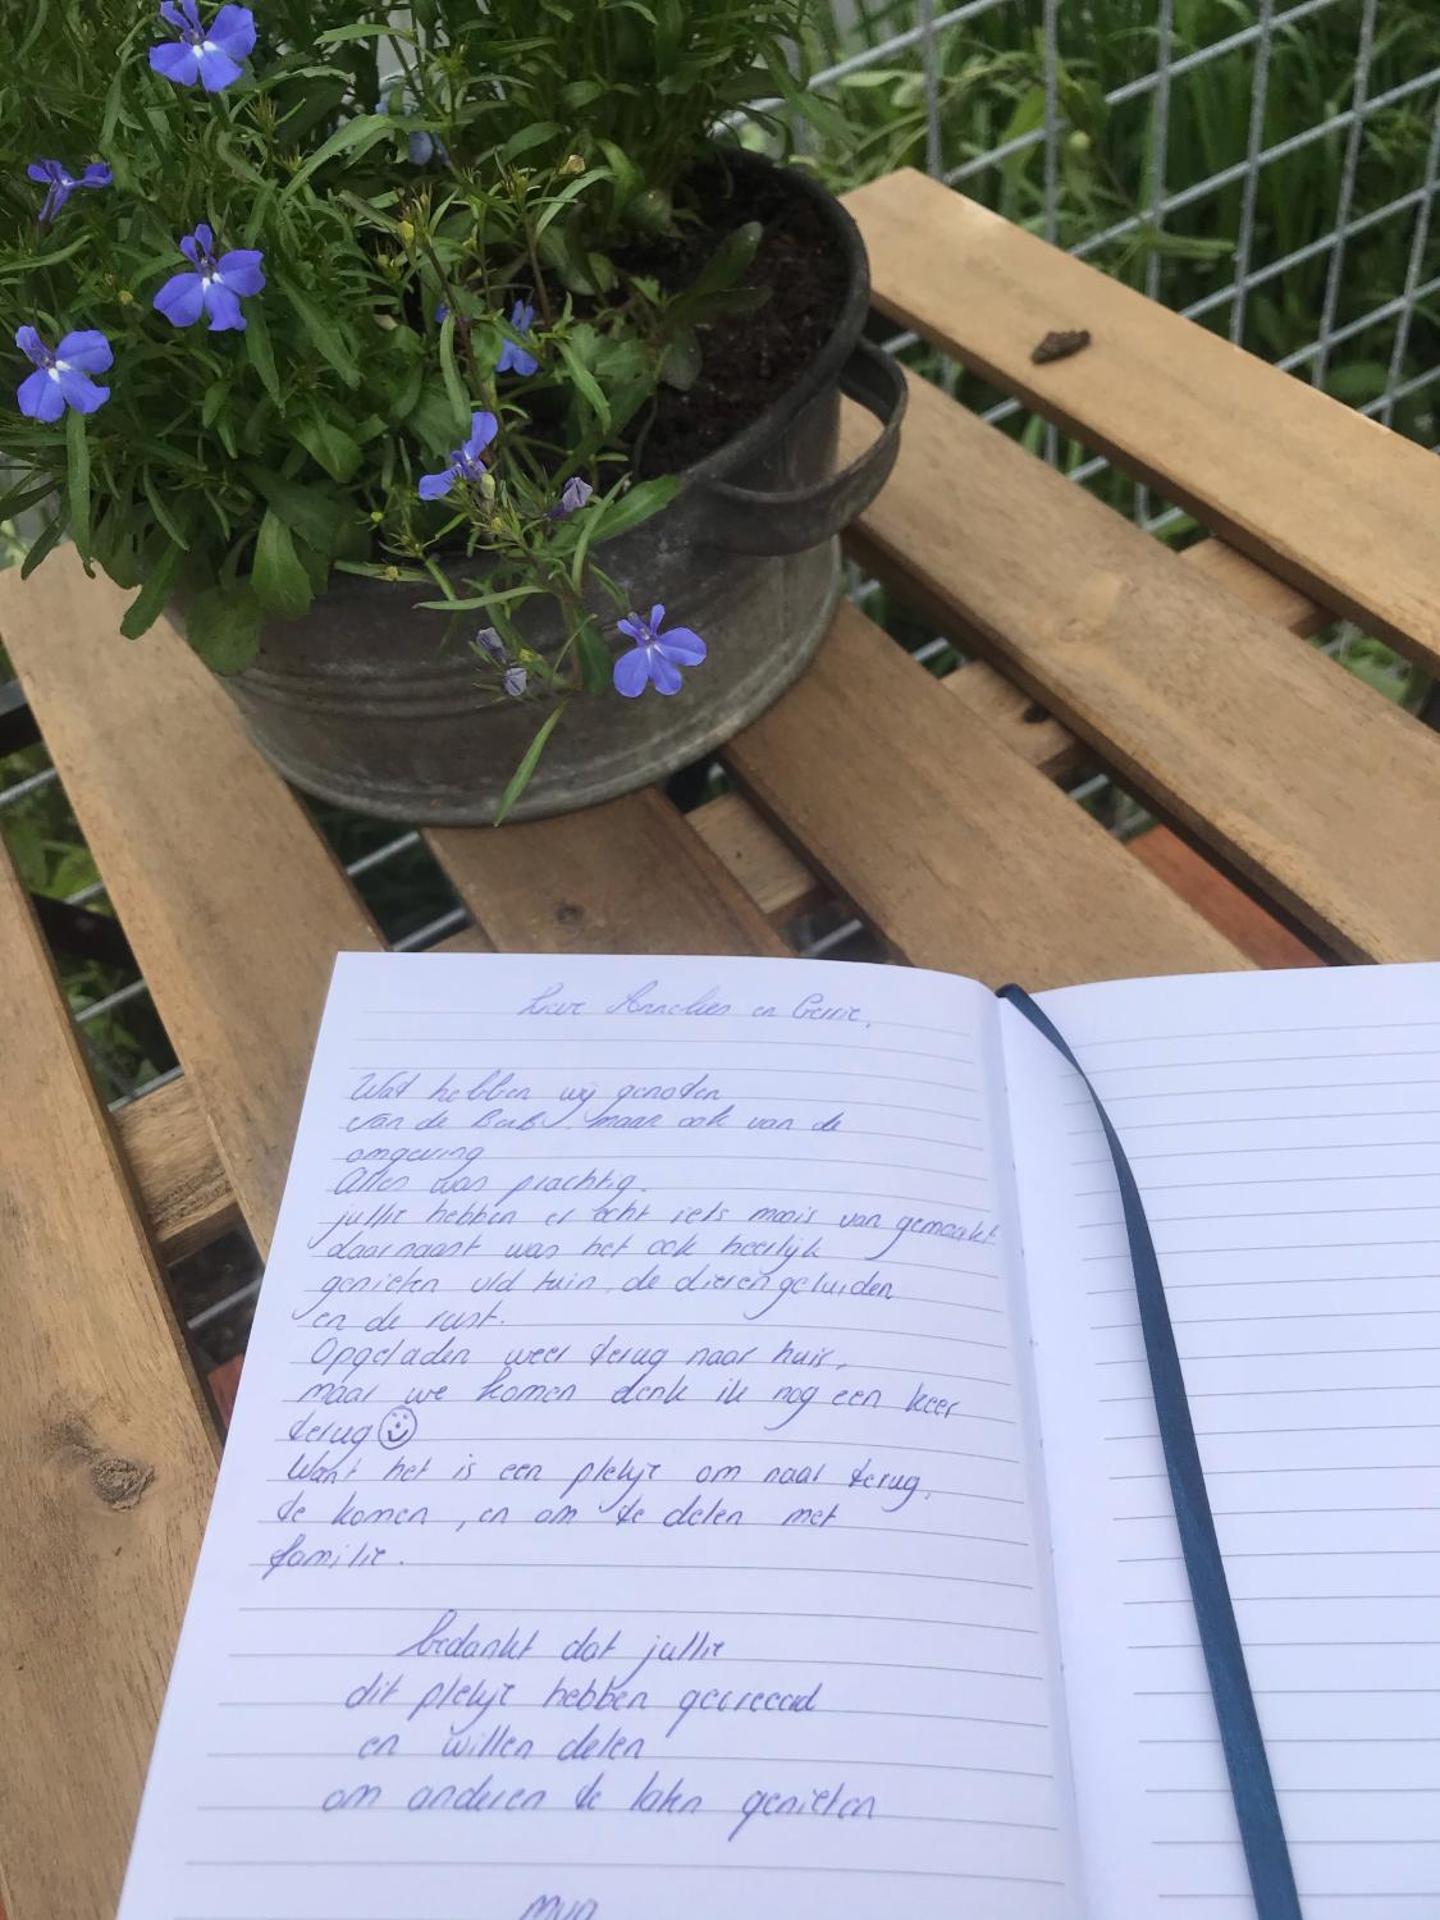 Lieve Annelies en Gerrie,
Wat hebben wij genoten
van de B&B, maar ook van de
omgeving
Alles was prachtig.
jullie hebben er echt iets moois van gemaakt
daarnaast was het ook heerlijk
genieten v/d tuin, de dierengeluiden
en de rust.
Opgeladen weer terug naar huis,
maar we komen denk ik nog een keer
terug ☺
Want het is een plekje om naar terug,
te komen, en om te delen met
familie.
bedankt dat jullie
dit plekje hebben gecreeerd
en willen delen
om anderen te laten genieten